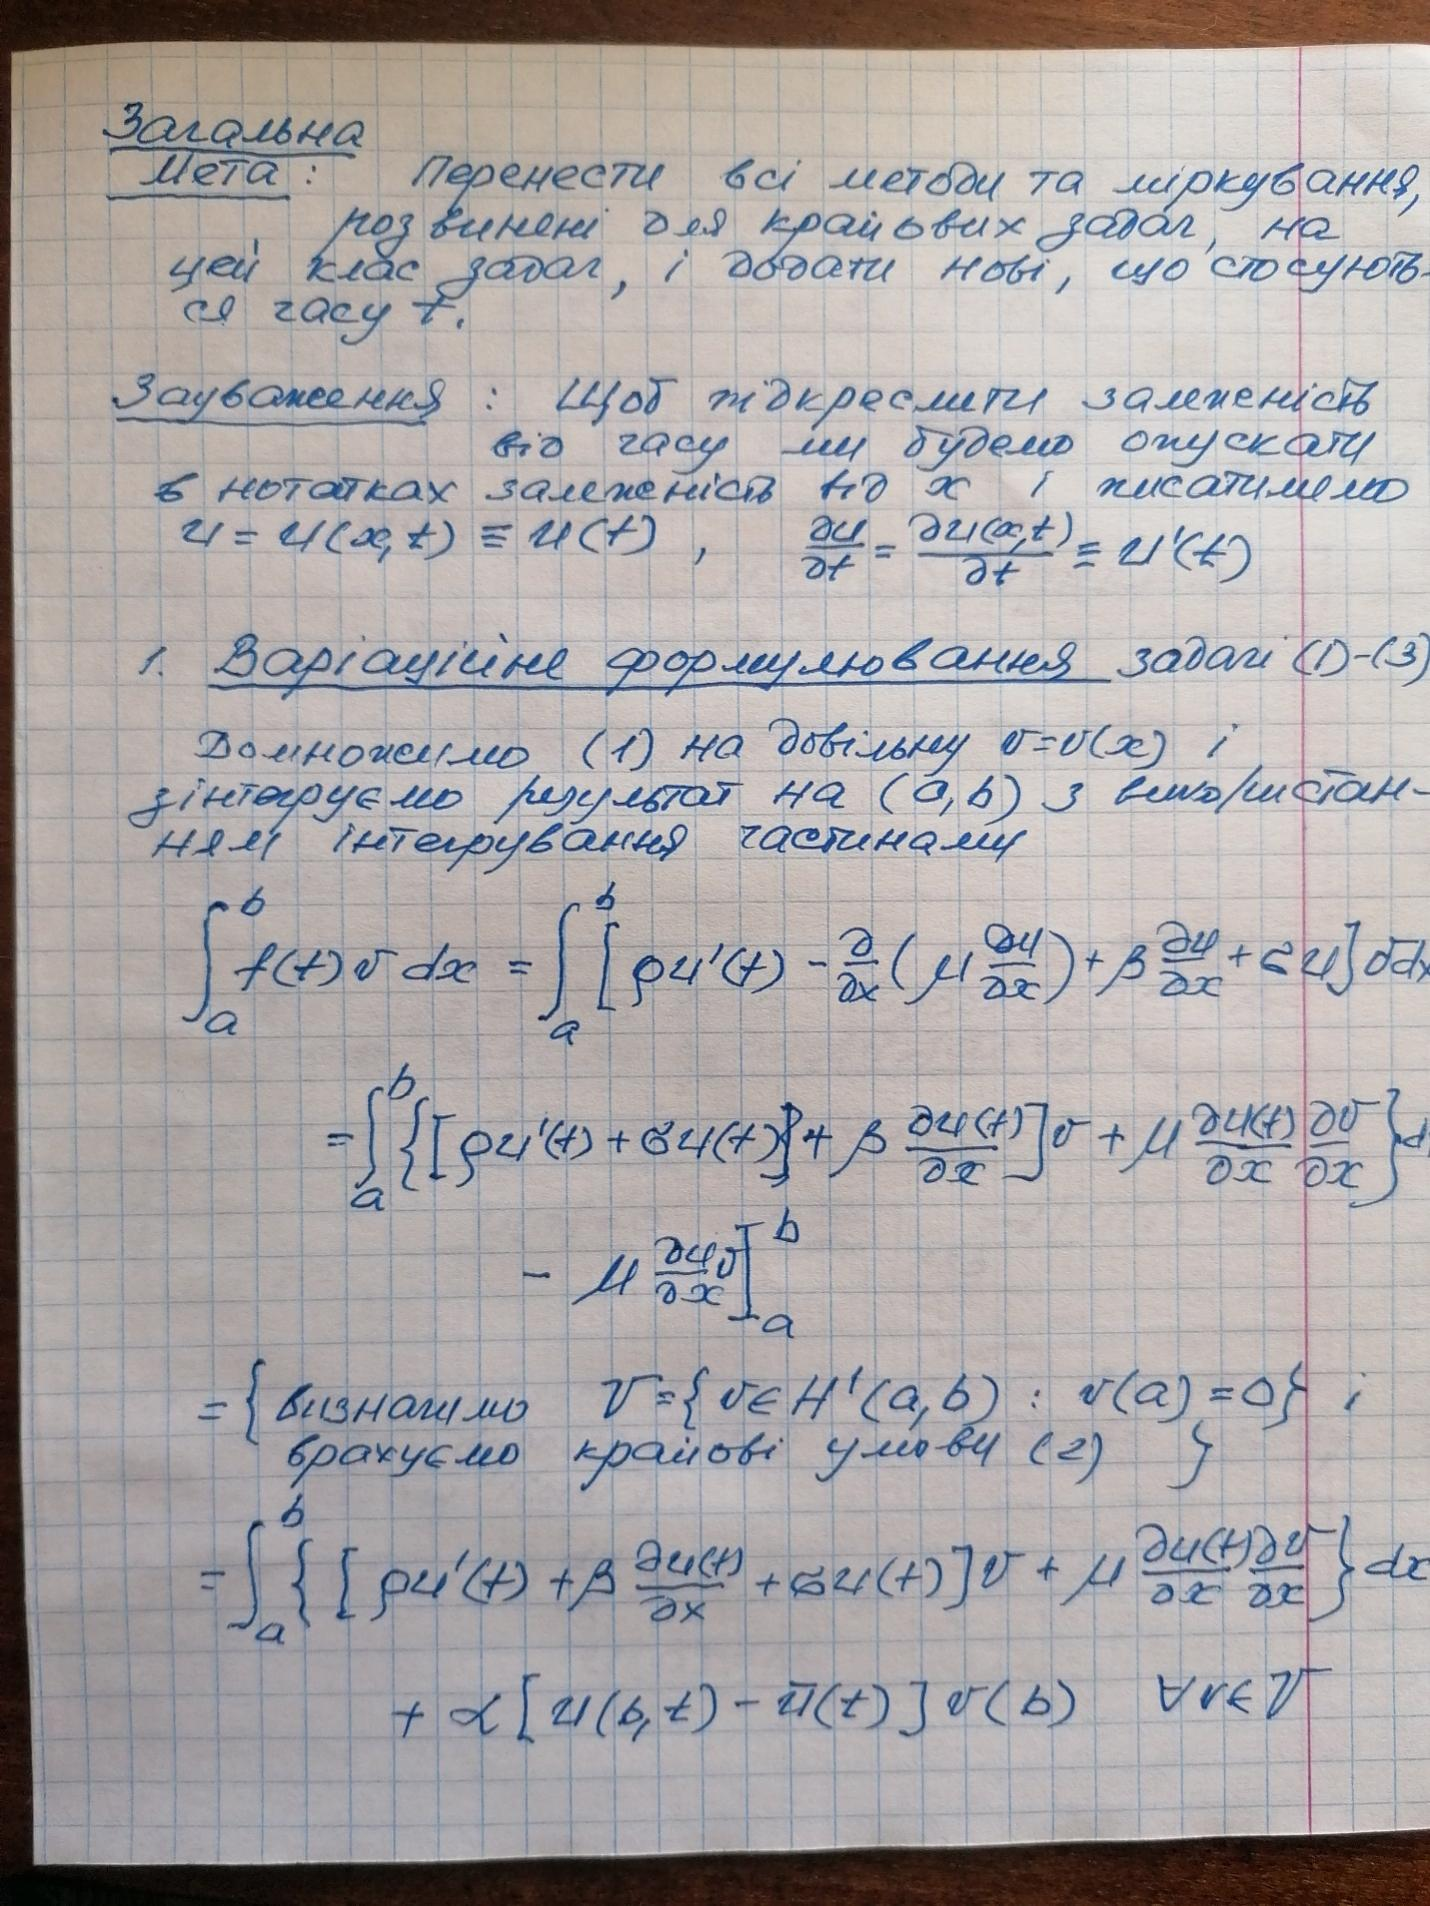 Загальна
Мета: Перенести всі методи та міркування,
розвинені для крайових задач, на
цей клас задач, і додати нові, що стосують-
ся часу t.
Зауваження: Щоб підкреслити залежність
від часу ми будемо опускати
в нотатках залежність від x і писатимемо
u = u(x,t) ≡ u(t), ∂u/∂t = ∂u(x,t)/∂t ≡ u'(t)
1. Варіаційне формулювання задачі (1)-(3)
Домножимо (1) на довільну v=v(x) і
зінтегруємо результат на (a,b) з використан-
ням інтегрування частинами
∫_a^b f(t) v dx = ∫_a^b [ρu'(t) - ∂/∂x (μ ∂u/∂x) + β ∂u/∂x + σu] v dx
= ∫_a^b {[ρu'(t) + σu(t)] + β ∂u(t)/∂x] v + μ ∂u(t)/∂x ∂v/∂x} d
- μ ∂u/∂x v]_a^b
= { визначимо V = {v ∈ H¹(a,b) : v(a) = 0} і
врахуємо крайові умови (2) }
= ∫_a^b {[ρu'(t) + β ∂u(t)/∂x + σu(t)] v + μ ∂u(t)/∂x ∂v/∂x} dx
+ α [u(b,t) - ū(t)] v(b) ∀v∈V